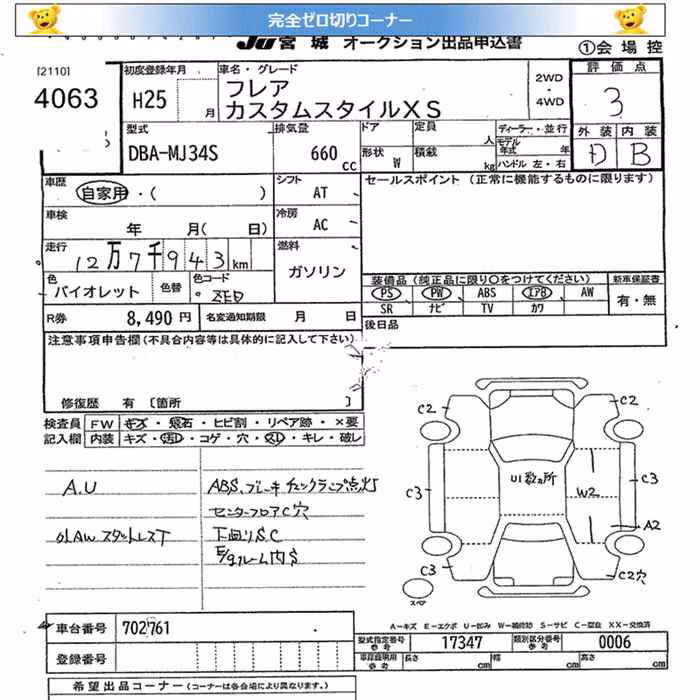 完全ゼロ切りコーナー
JU宮城 オークション出品申込書
①会場控
[2110]
4063
初度登録年月
H25 月
車名・グレード
フレア
カスタムスタイルXS
2WD
・
4WD
評価点
3
外装 内装
D B
型式
DBA-MJ34S
排気量
660 cc
ドア 定員 人
形状 W 積載 kg
ディーラー・並行
モデル年式 年
ハンドル 左・右
車歴
自家用・( )
シフト
AT
セールスポイント (正常に機能するものに限ります)
車検
年 月( 日)
冷房
AC
走行
12万7千943km
燃料
ガソリン
色
バイオレット
色替
色コード
ZED
装備品(純正品に限り○をつけてください)
PS PW ABS エアB AW
SR ナビ TV カワ
新車保証書
有・無
R券 8,490円 名変通知期限 月 日
後日品
注意事項申告欄(不具合内容等は具体的に記入して下さい)
修復歴 有 [箇所 ]
検査員記入欄
FW キズ・飛石・ヒビ割・リペア跡・×要
内装 キズ・汚レ・コゲ・穴・スレ・キレ・破レ
A.U
ABS、ブレーキ チェックランプ点灯
センターフロアC穴
01AW スタットレスT
下回りS.C
E/gルーム内S
C2 C2
C3 C3
U1数ヵ所
W2
A2
C3 C2穴
スペア
A−キズ E−エクボ U−凹み W−補修跡 S−サビ C−腐食 XX−交換済
車台番号 702761
型式指定番号 参考 17347
類別区分番号 参考 0006
登録番号
車庫証明用 参考 長さ cm 幅 cm 高さ cm
希望出品コーナー(コーナーは各会場により異なります。)